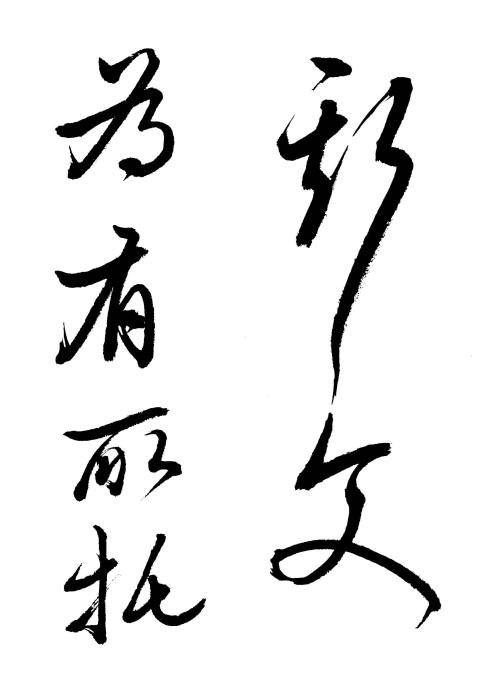 新文
為有所托